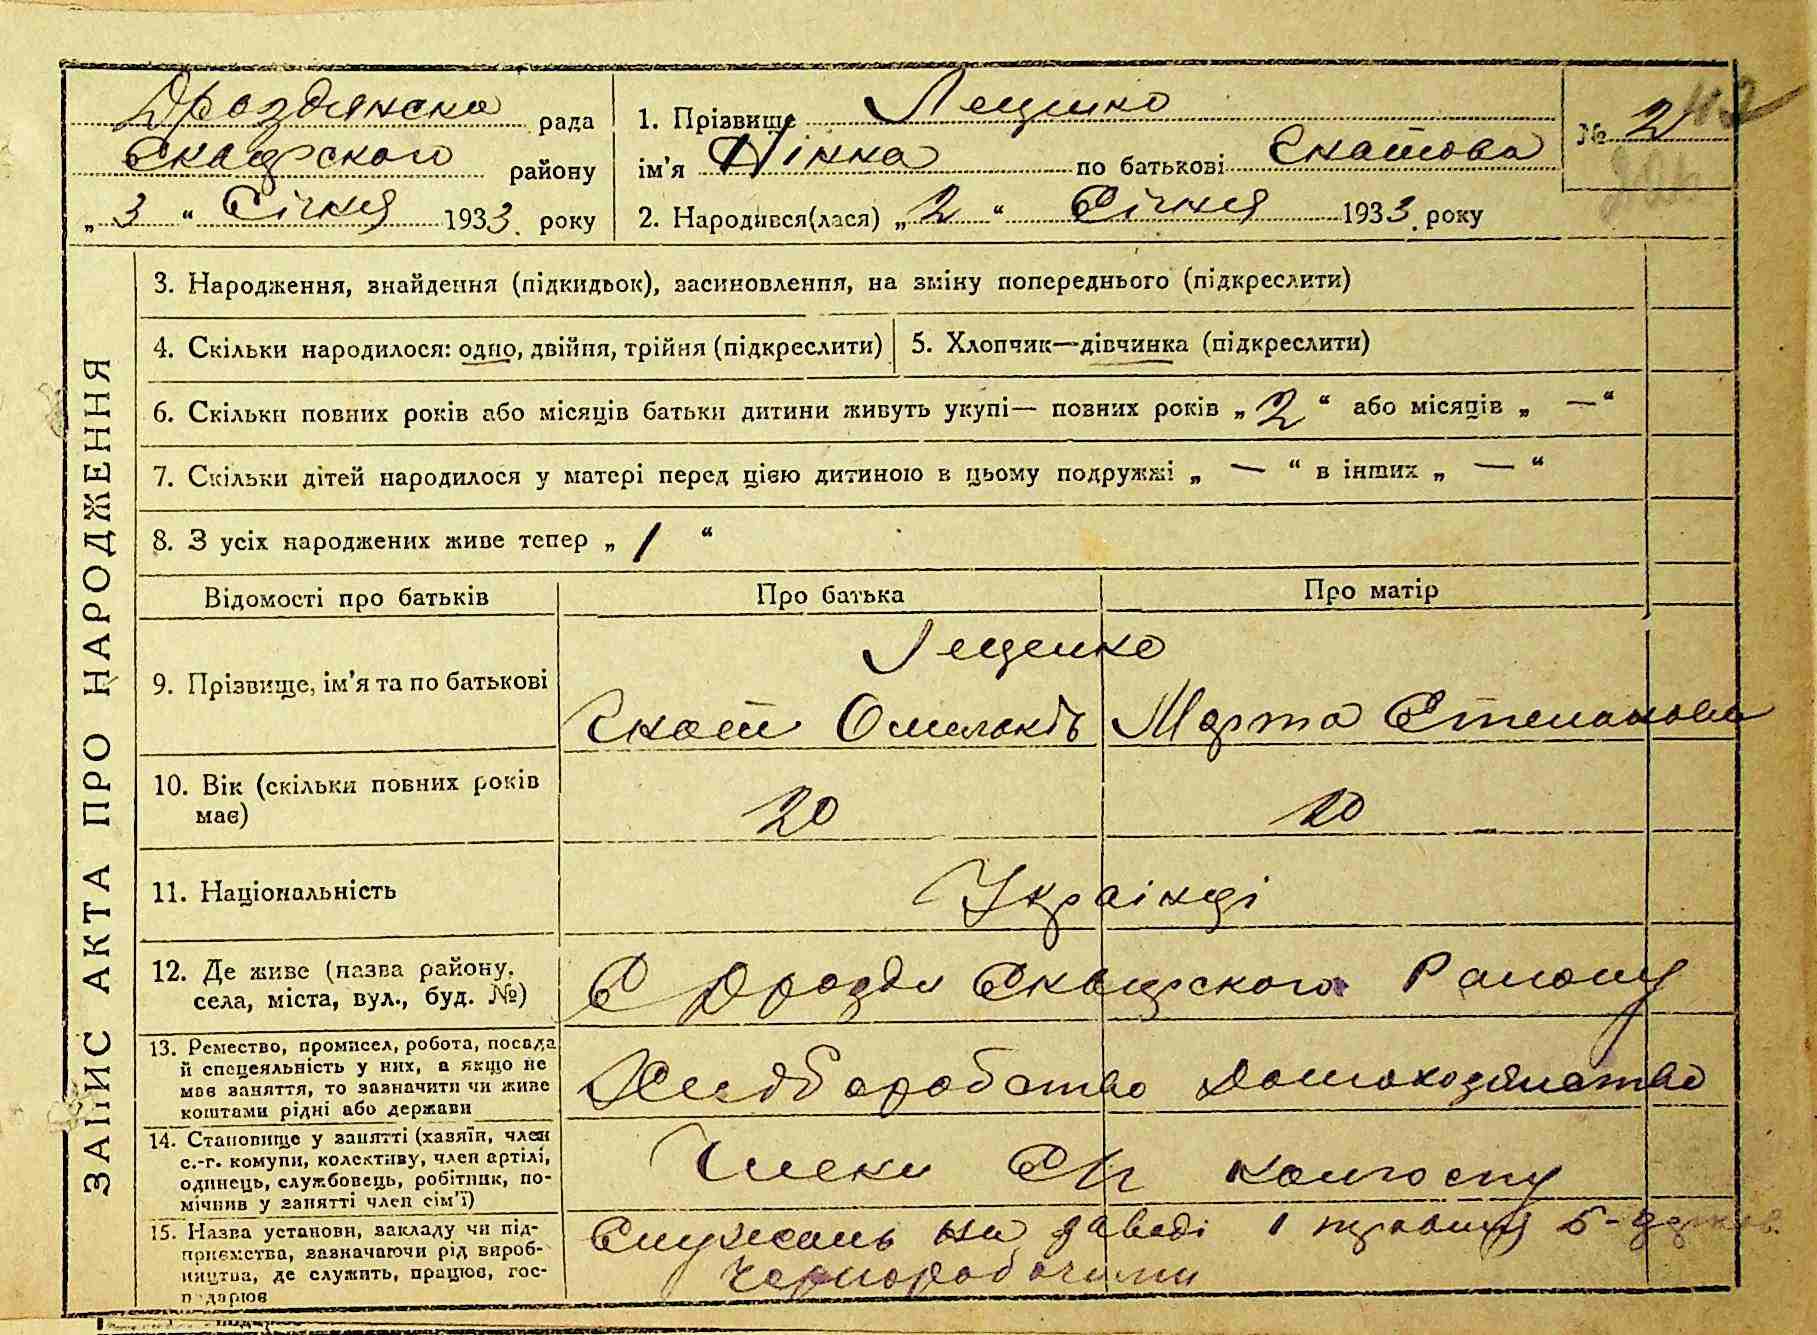 Дроздянська рада
Сквирського району
„ 3 “ Січня 1933. року
1. Прізвище Лещенко
ім'я Нінна по батькові Гнатова
2. Народився(лася) „ 2 “ Січня 1933. року
№ 2
ЗАПИС АКТА ПРО НАРОДЖЕННЯ
3. Народження, знайдення (підкидьок), засиновлення, на зміну попереднього (підкреслити)
4. Скільки народилося: одно, двійня, трійня (підкреслити)
5. Хлопчик—дівчинка (підкреслити)
6. Скільки повних років або місяців батьки дитини живуть укупі— повних років „ 2 “ або місяців „ — “
7. Скільки дітей народилося у матері перед цією дитиною в цьому подружжі „ — “ в інших „ — “
8. З усіх народжених живе тепер „ 1 “
Відомості про батьків Про батька Про матір
Лещенко
9. Прізвище, ім'я та по батькові
Гнат Омельків Марта Степанова
10. Вік (скільки повних років
має) 20 20
11. Національність Українці
12. Де живе (назва району,
села, міста, вул., буд. №) С Дрозди Сквирського Району
13. Ремество, промисел, робота, посада
й спецеяльність у них, а якщо не
має заняття, то зазначити чи живе
коштами рідні або держави
Хліборобство Домохозяйство
14. Становище у занятті (хазяїн, член
с.-г. комуни, колективу, член артілі,
одинець, службовець, робітник, по-
мічнив у занятті член сім'ї)
Члени колгоспу
15. Назва установи, закладу чи під-
приємства, зазначаючи рід вироб-
ництва, де служить, працює, гос-
подарює
на заводі 1 травня
Чорноробочими